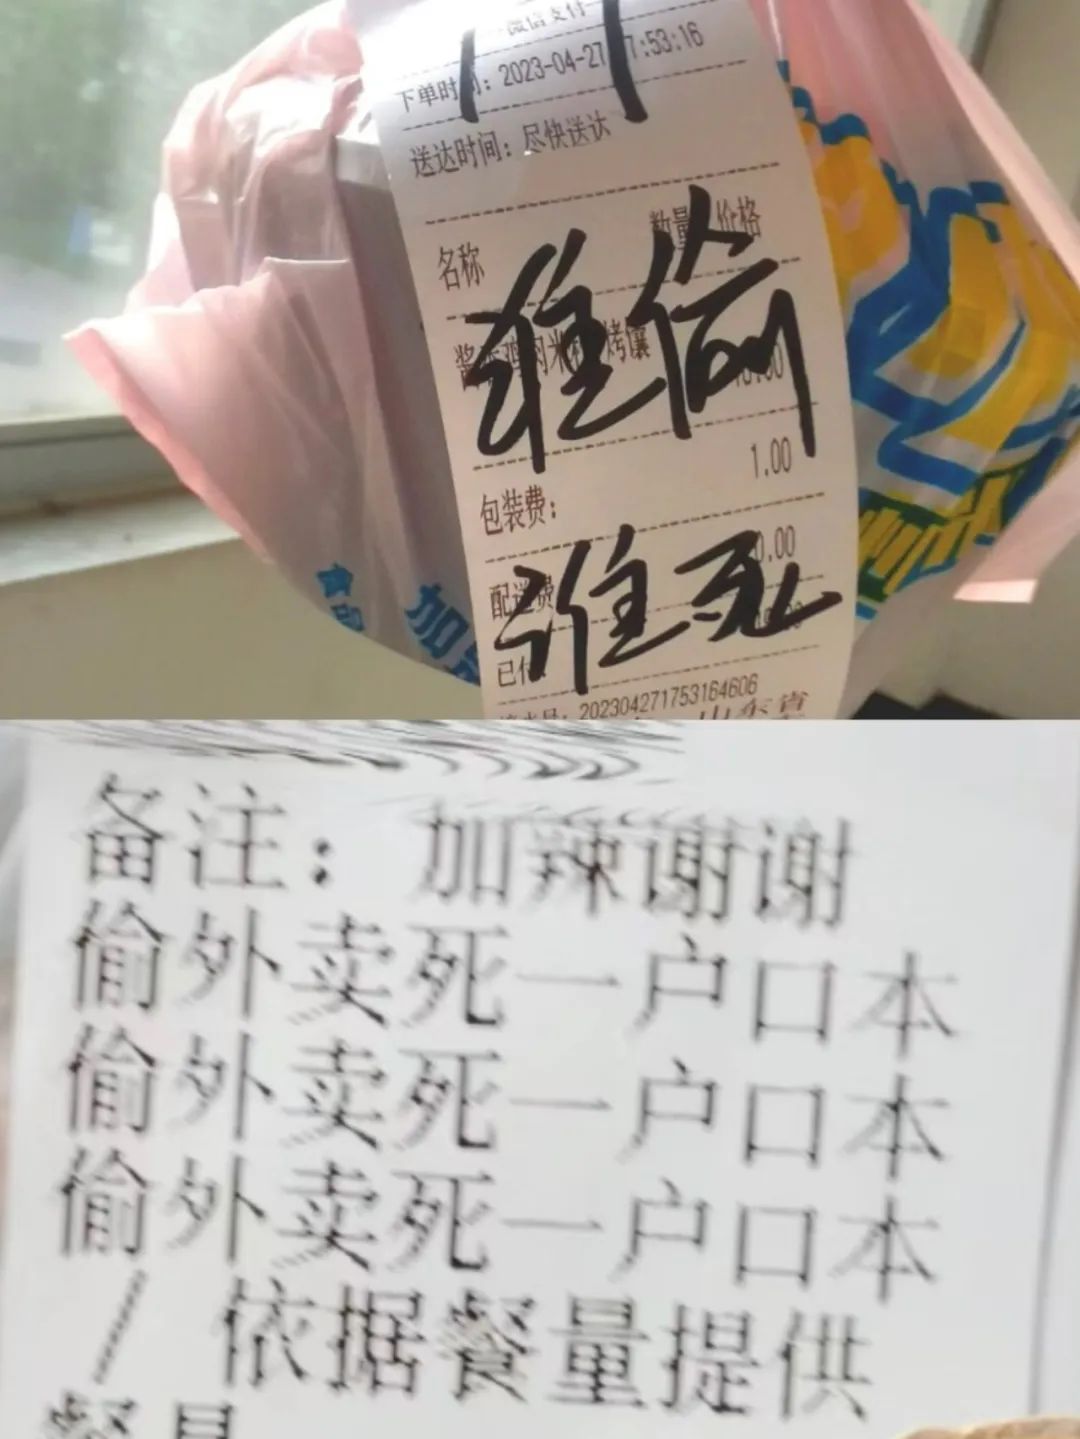 微信支付
下单时间：2023-04-27 17:53:16
送达时间：尽快送达
名称 数量 价格
谁偷
烤馕
包装费： 1.00
配送费 0.00
谁死
已付
202304271753164606
山东省
加
备注：加辣谢谢
偷外卖死一户口本
偷外卖死一户口本
偷外卖死一户口本
/ 依据餐量提供
餐具